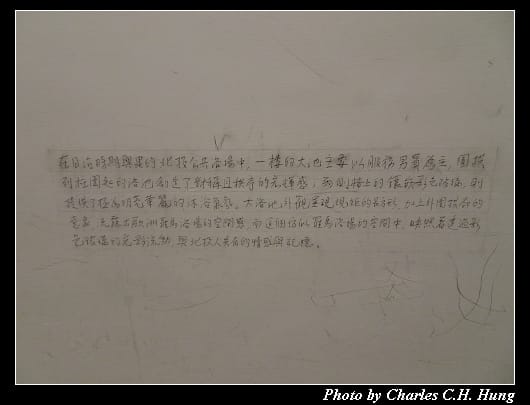 在日治時期興建的北投公共浴場中，一樓的大池主要以服務男賓為主，圍拱
列柱圍起的浴池創造了對稱且秩序的光輝感，兩側牆上的鑲嵌彩色玻璃，則
提供了極為明亮華麗的沐浴氣氛。大浴池外觀呈現規矩的長方形，加上外圍拱廊的
意象，流露出歐洲羅馬浴場的空間感，而這個仿似羅馬浴場的空間中，映照著透過彩
色玻璃的光影流動，與北投人共有的情感與記憶。
Photo by Charles C.H. Hung